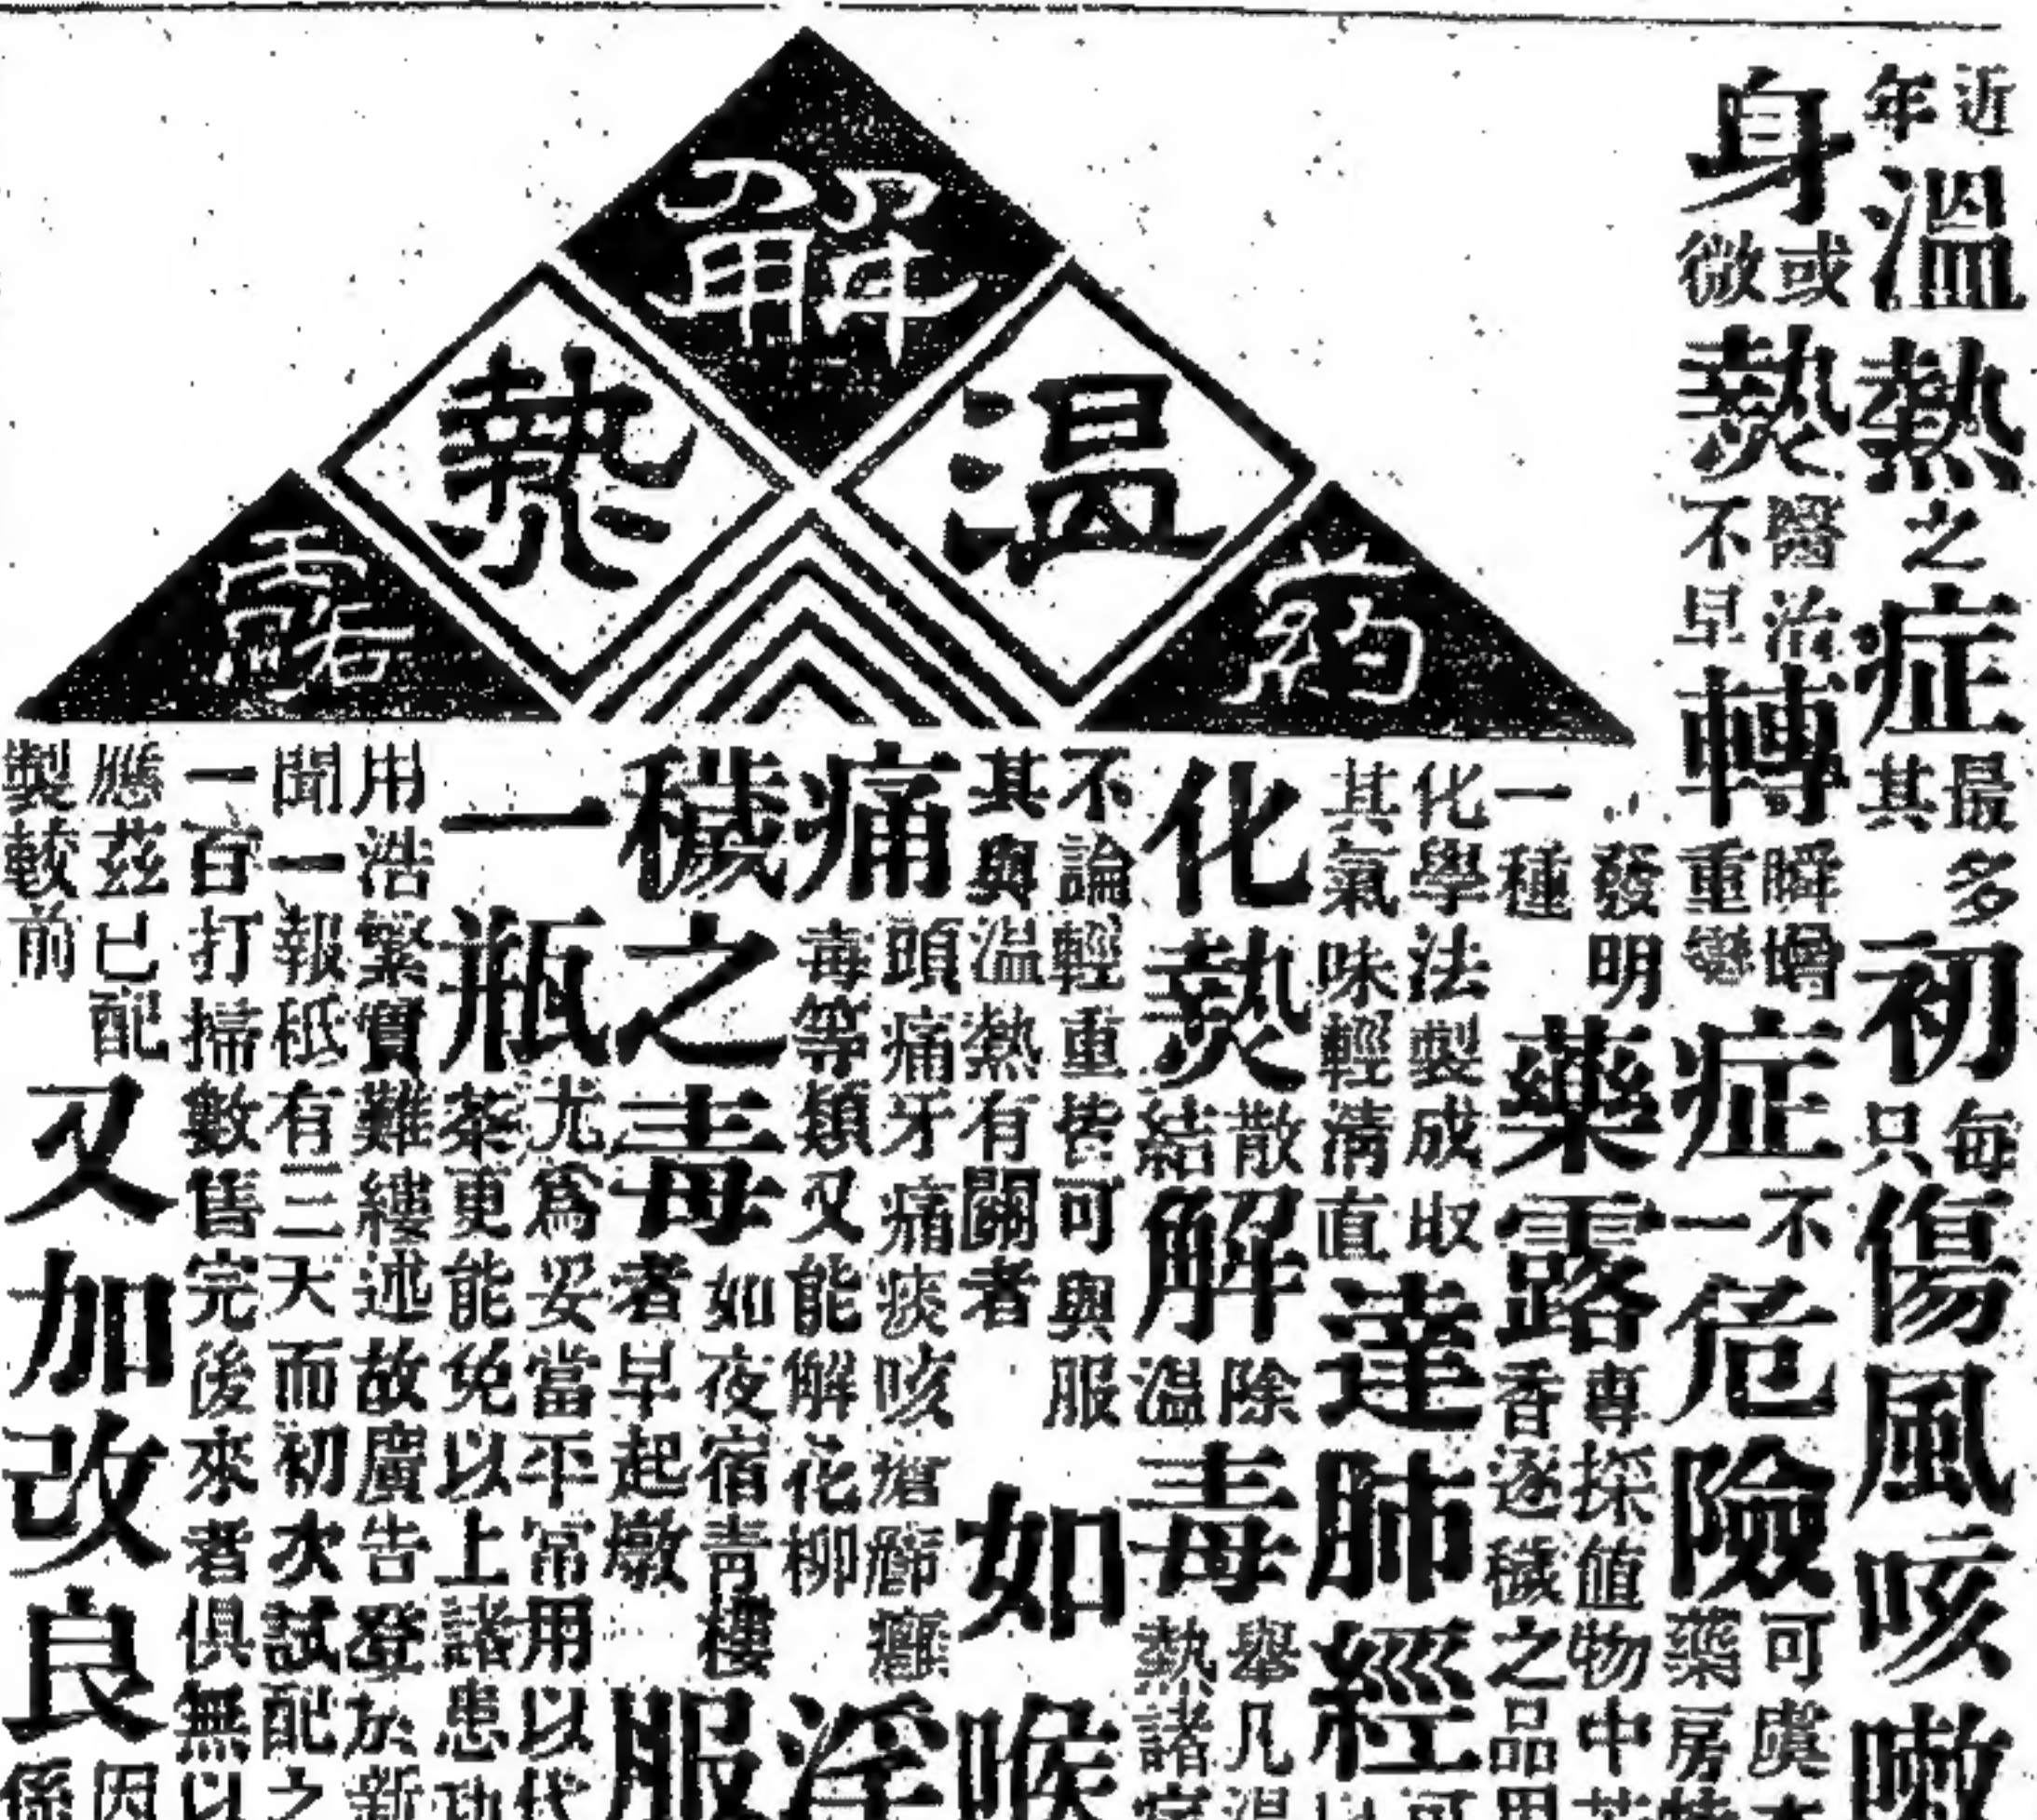 解
温熱
药露
近年溫熱之症最多其初每只傷風咳嗽
身或微熱醫治不早轉瞬增重變症不一危險可虞藥房
發明一種藥露專採値物中香逐穢之品用
化學法製成取其氣味輕清直達肺經可
化熱散結解除温毒舉凡温熱諸
不論輕重皆可與服其與温熱有關者如喉
痛頭痛牙痛痰咳瘡癤癰毒等類又能解花柳淫
穢之毒如夜宿青樓者早起墩服
一瓶尤爲妥當平常用以代茶更能免以上諸患功
用浩繁實難縷述故廣告登於新
聞一報秪有三天而初次試配之
一百打掃數售完後來者俱無以
應茲已配製較前又加改良因係